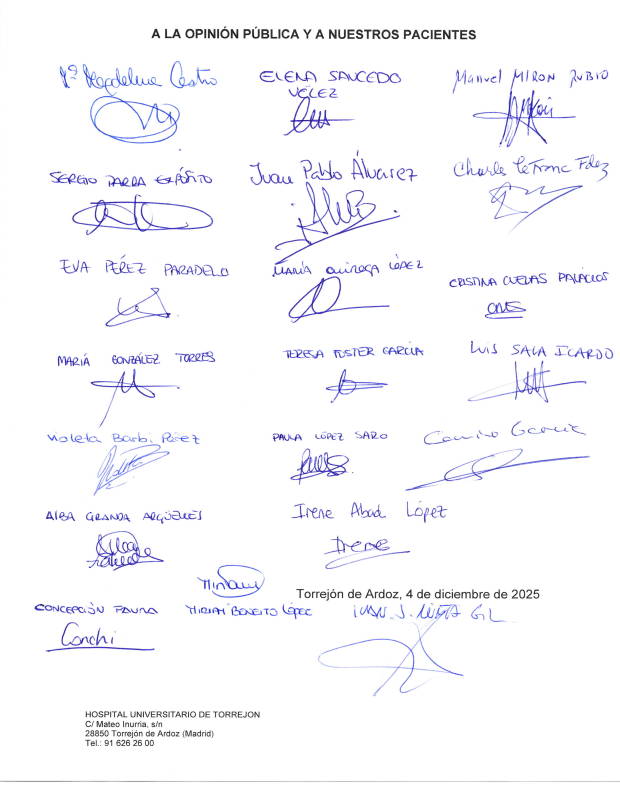 A LA OPINIÓN PÚBLICA Y A NUESTROS PACIENTES
Mª Magdelena Castro
ELENA SAUCEDO
VÉLEZ
Manuel MIRON RUBIO
SERGIO PARRA EXPÓSITO
Juan Pablo Álvarez
Charle LeFranc Fdez
EVA PÉREZ PARADELO
MARÍA Quiroga LÓPEZ
CRISTINA CUEVAS PALACIOS
MARÍA GONZÁLEZ TORRES
TERESA FUSTER GARCÍA
LUIS SALA ICARDO
Violeta Barbi Pérez
PAULA LÓPEZ SARO
Camino García
ALBA GRANDA ARGÜELLES
Irene Abad López
Irene
Miriam
Torrejón de Ardoz, 4 de diciembre de 2025
CONCEPCIÓN FAURA
MIRIAM BONCITO LÓPEZ
IVAN. J. GIL
Conchi
HOSPITAL UNIVERSITARIO DE TORREJON
C/ Mateo Inurria, s/n
28850 Torrejón de Ardoz (Madrid)
Tel.: 91 626 26 00